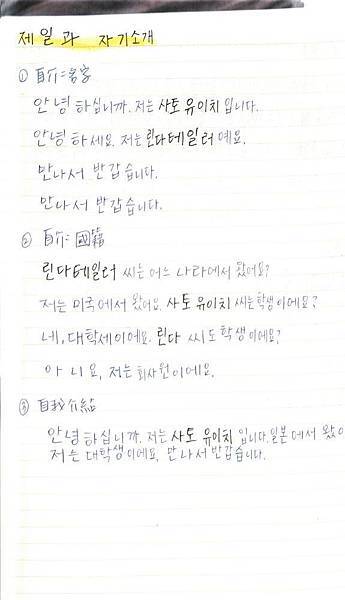 제 일 과 자기소개
① 自介=名字
안녕하십니까. 저는 사토 유이치 입니다.
안녕하세요. 저는 린다 테일러 예요.
만나서 반갑습니다.
만나서 반갑습니다.
② 自介= 國籍
린다 테일러 씨는 어느 나라에서 왔어요?
저는 미국에서 왔어요. 사토 유이치 씨는 학생이에요?
네, 대학세이에요. 린다 씨도 학생이에요?
아니요, 저는 회사원이에요.
③ 自我介紹
안녕하십니까. 저는 사토 유이치 입니다. 일본에서 왔
저는 대학생이에요, 만나서 반갑습니다.